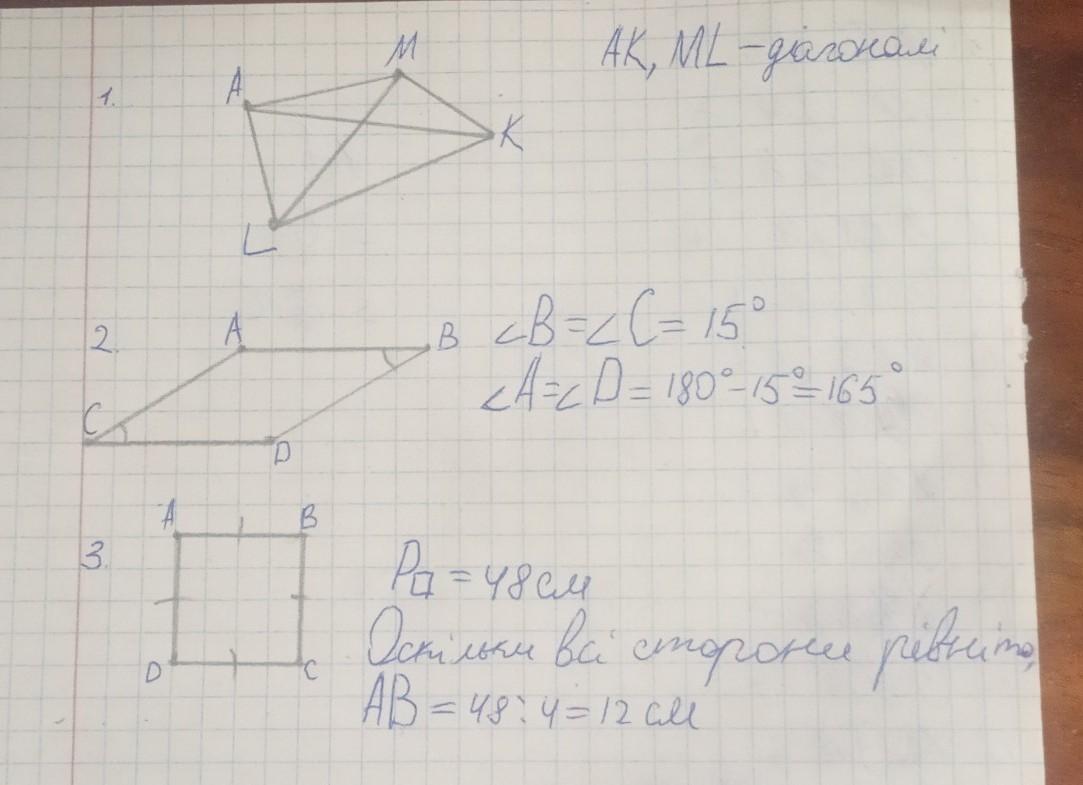 1.
A
M
K
L
AK, ML – діагоналі
2.
A
B
C
D
∠B=∠C= 15°
∠A=∠D= 180°–15°=165°
3.
A
B
D
C
P□ = 48 см
Оскільки всі сторони рівні то,
AB = 48:4=12 см